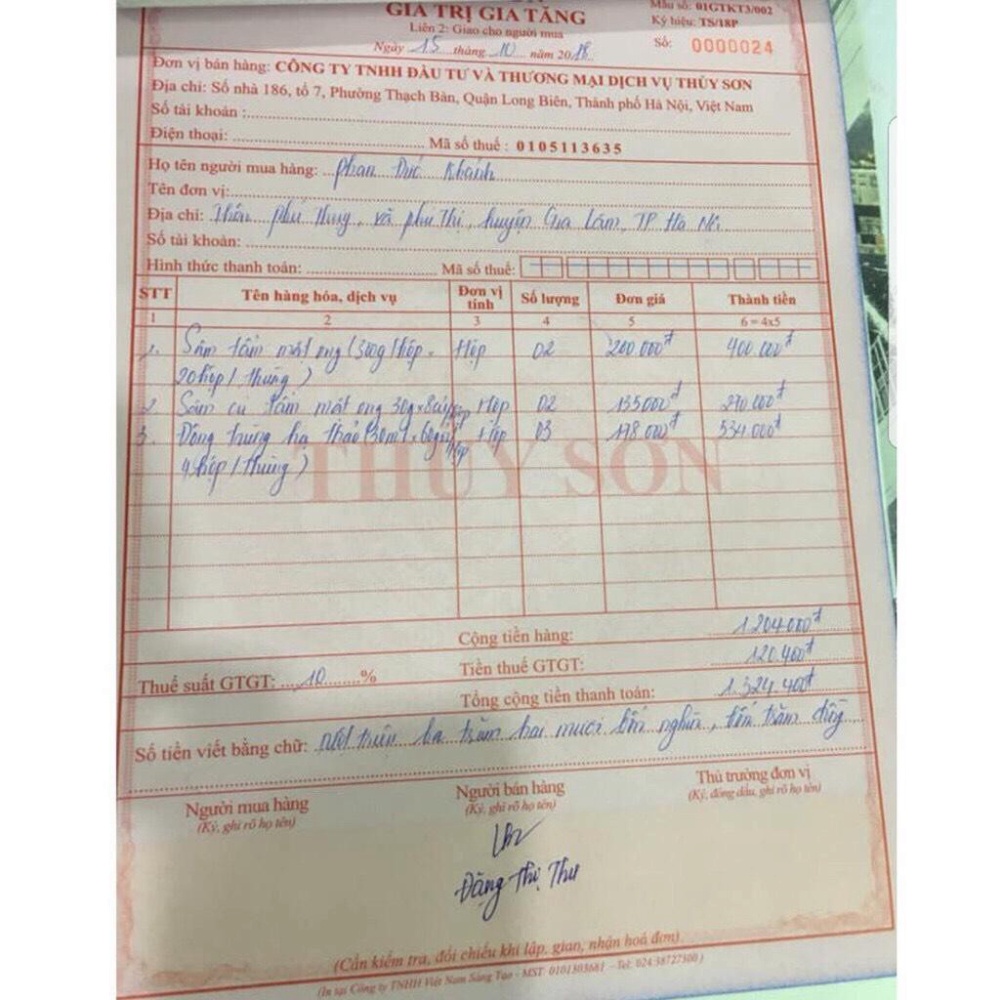 GIÁ TRỊ GIA TĂNG
Liên 2: Giao cho người mua
Ngày 15 tháng 10 năm 2018
Mẫu số: 01GTKT3/002
Ký hiệu: TS/18P
Số: 0000024
Đơn vị bán hàng: CÔNG TY TNHH ĐẦU TƯ VÀ THƯƠNG MẠI DỊCH VỤ THỦY SƠN
Địa chỉ: Số nhà 186, tổ 7, Phường Thạch Bàn, Quận Long Biên, Thành phố Hà Nội, Việt Nam
Số tài khoản :
Điện thoại: Mã số thuế : 0105113635
Họ tên người mua hàng: Phan Đức Khánh
Tên đơn vị:
Địa chỉ: Thôn Phú Thụy, xã Phú Thị, huyện Gia Lâm, TP Hà Nội
Số tài khoản:
Hình thức thanh toán: Mã số thuế:
STT Tên hàng hóa, dịch vụ Đơn vị tính Số lượng Đơn giá Thành tiền
1 2 3 4 5 6 = 4x5
1. Sâm tẩm mật ong (300g/hộp. Hộp 02 200.000đ 400.000đ
20hộp/thùng)
2. Sâm củ tẩm mật ong 30g x 8củ/hộp Hộp 02 135000đ 270.000đ
3. Đông trùng hạ thảo (30ml x 60gói/hộp Hộp 03 178.000đ 534.000đ
4hộp/thùng)
THỦY SƠN
Cộng tiền hàng: 1.204.000đ
Thuế suất GTGT: 10 % Tiền thuế GTGT: 120.400đ
Tổng cộng tiền thanh toán: 1.324.400đ
Số tiền viết bằng chữ: Một triệu ba trăm hai mươi bốn nghìn, bốn trăm đồng
Người mua hàng Người bán hàng Thủ trưởng đơn vị
(Ký, ghi rõ họ tên) (Ký, ghi rõ họ tên) (Ký, đóng dấu, ghi rõ họ tên)
Đặng Thị Thu
(Cần kiểm tra, đối chiếu khi lập, giao, nhận hoá đơn)
(In tại Công ty TNHH Việt Nam Sáng Tạo - MST: 0101303661 - Tel: 024 38727300 )